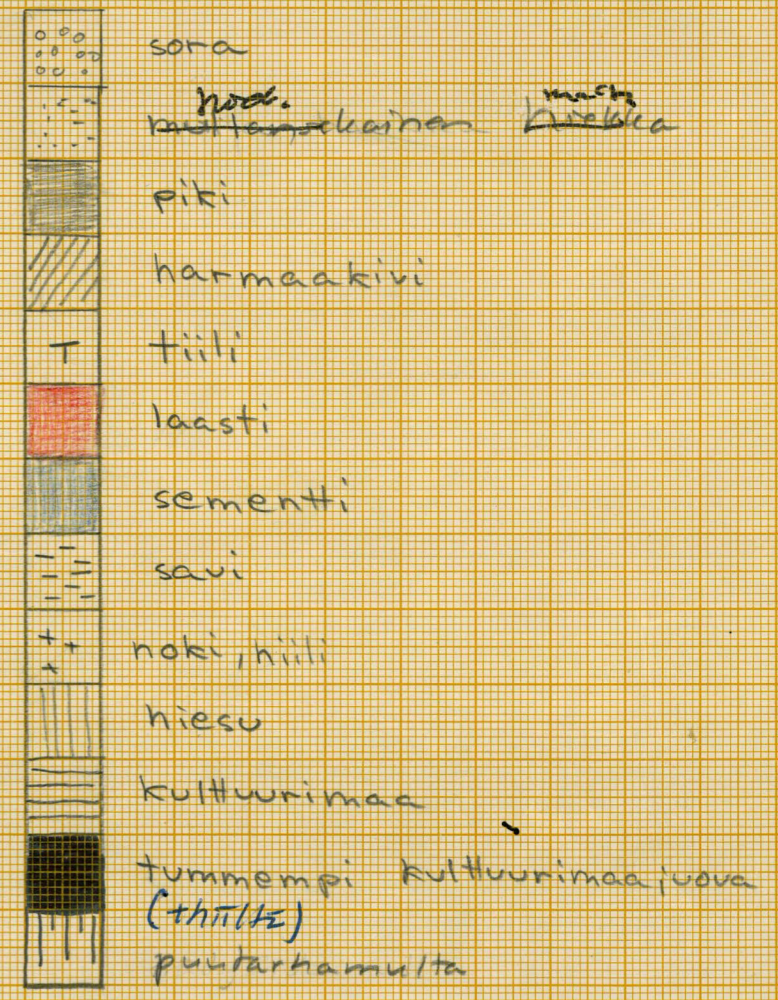 sora
multansekainen hiekka
piki
harmaakivi
T tiili
laasti
sementti
savi
noki, hiili
hiesu
kulttuurimaa
tummempi kulttuurimaajuova
puutarhamulta